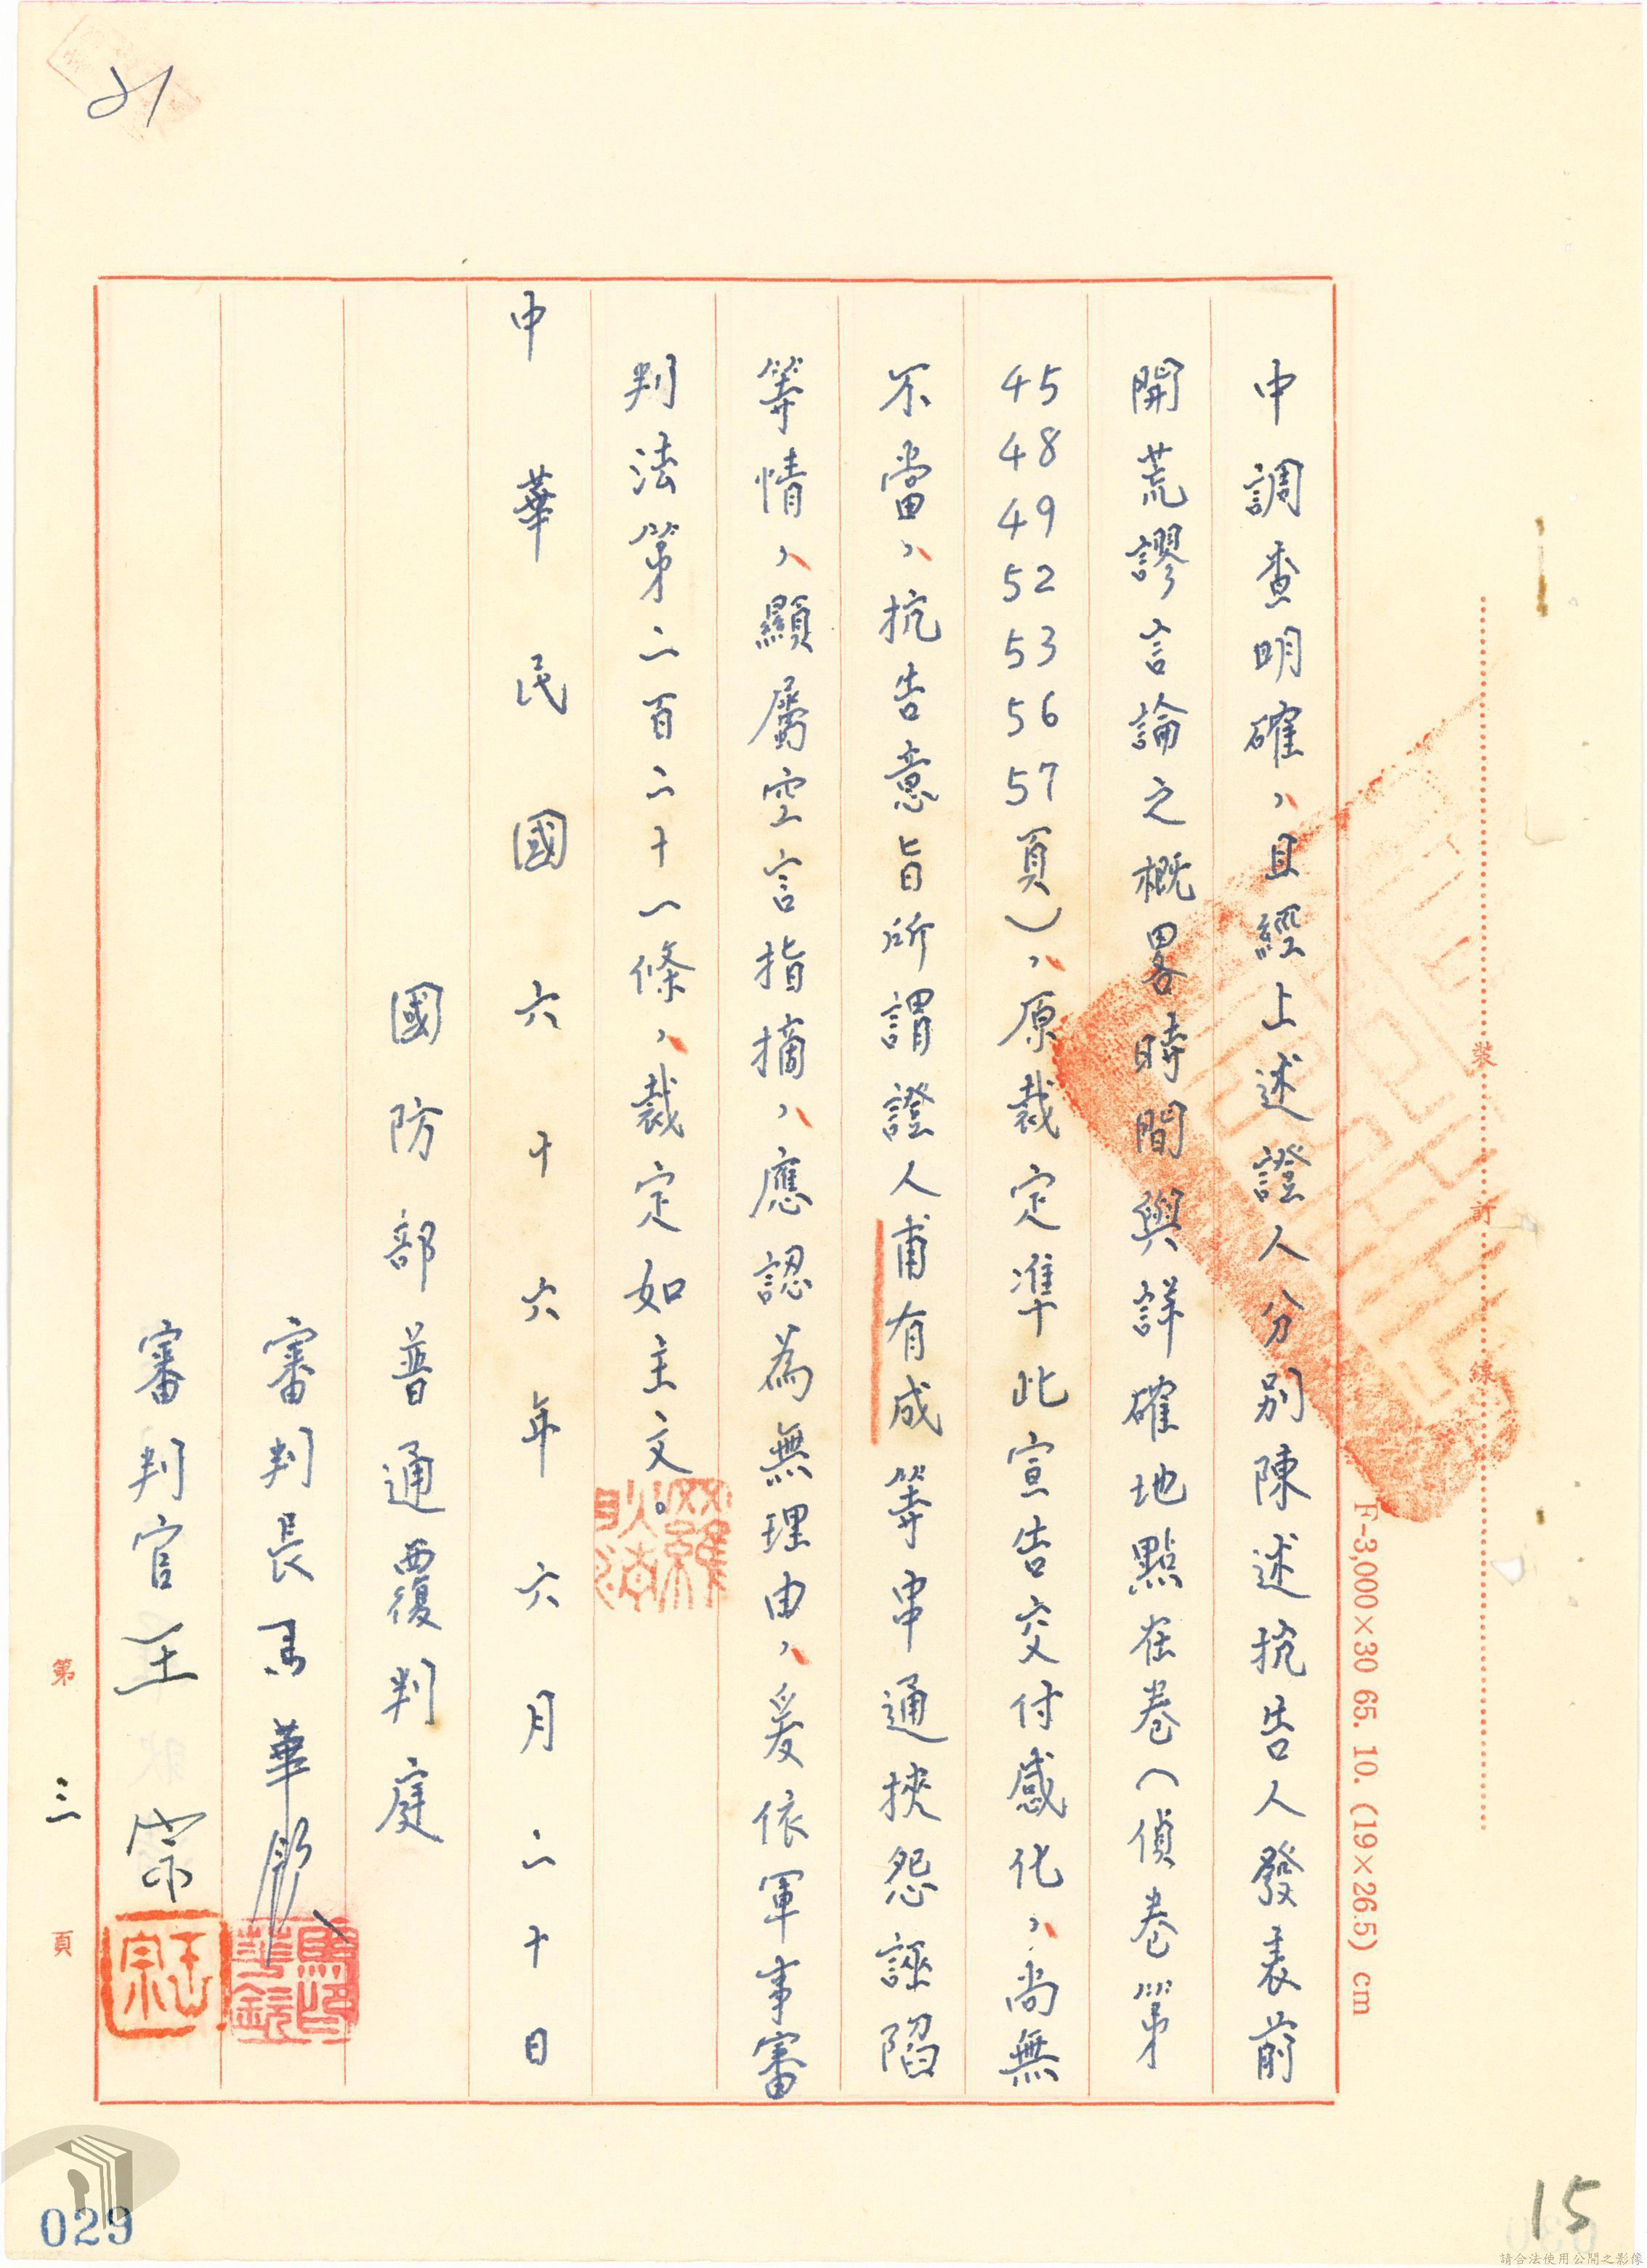 中調查明確，且經上述證人分別陳述抗告人發表前
開荒謬言論之概畧時間與詳確地點在卷（偵卷第
45 48 49 52 53 56 57頁），原裁定準此宣告交付感化，尚無
不當，抗告意旨所謂證人甫有成等串通挾怨誣陷
等情，顯屬空言指摘，應認為無理由，爰依軍事審
判法第二百二十一條，裁定如主文。
中華民國六十六年六月二十日
國防部普通覆判庭
審判長馬華
審判官王宗
第三頁
裝訂線
F-3,000×30 65. 10. (19×26.5) cm
029
15
請合法使用公開之影像